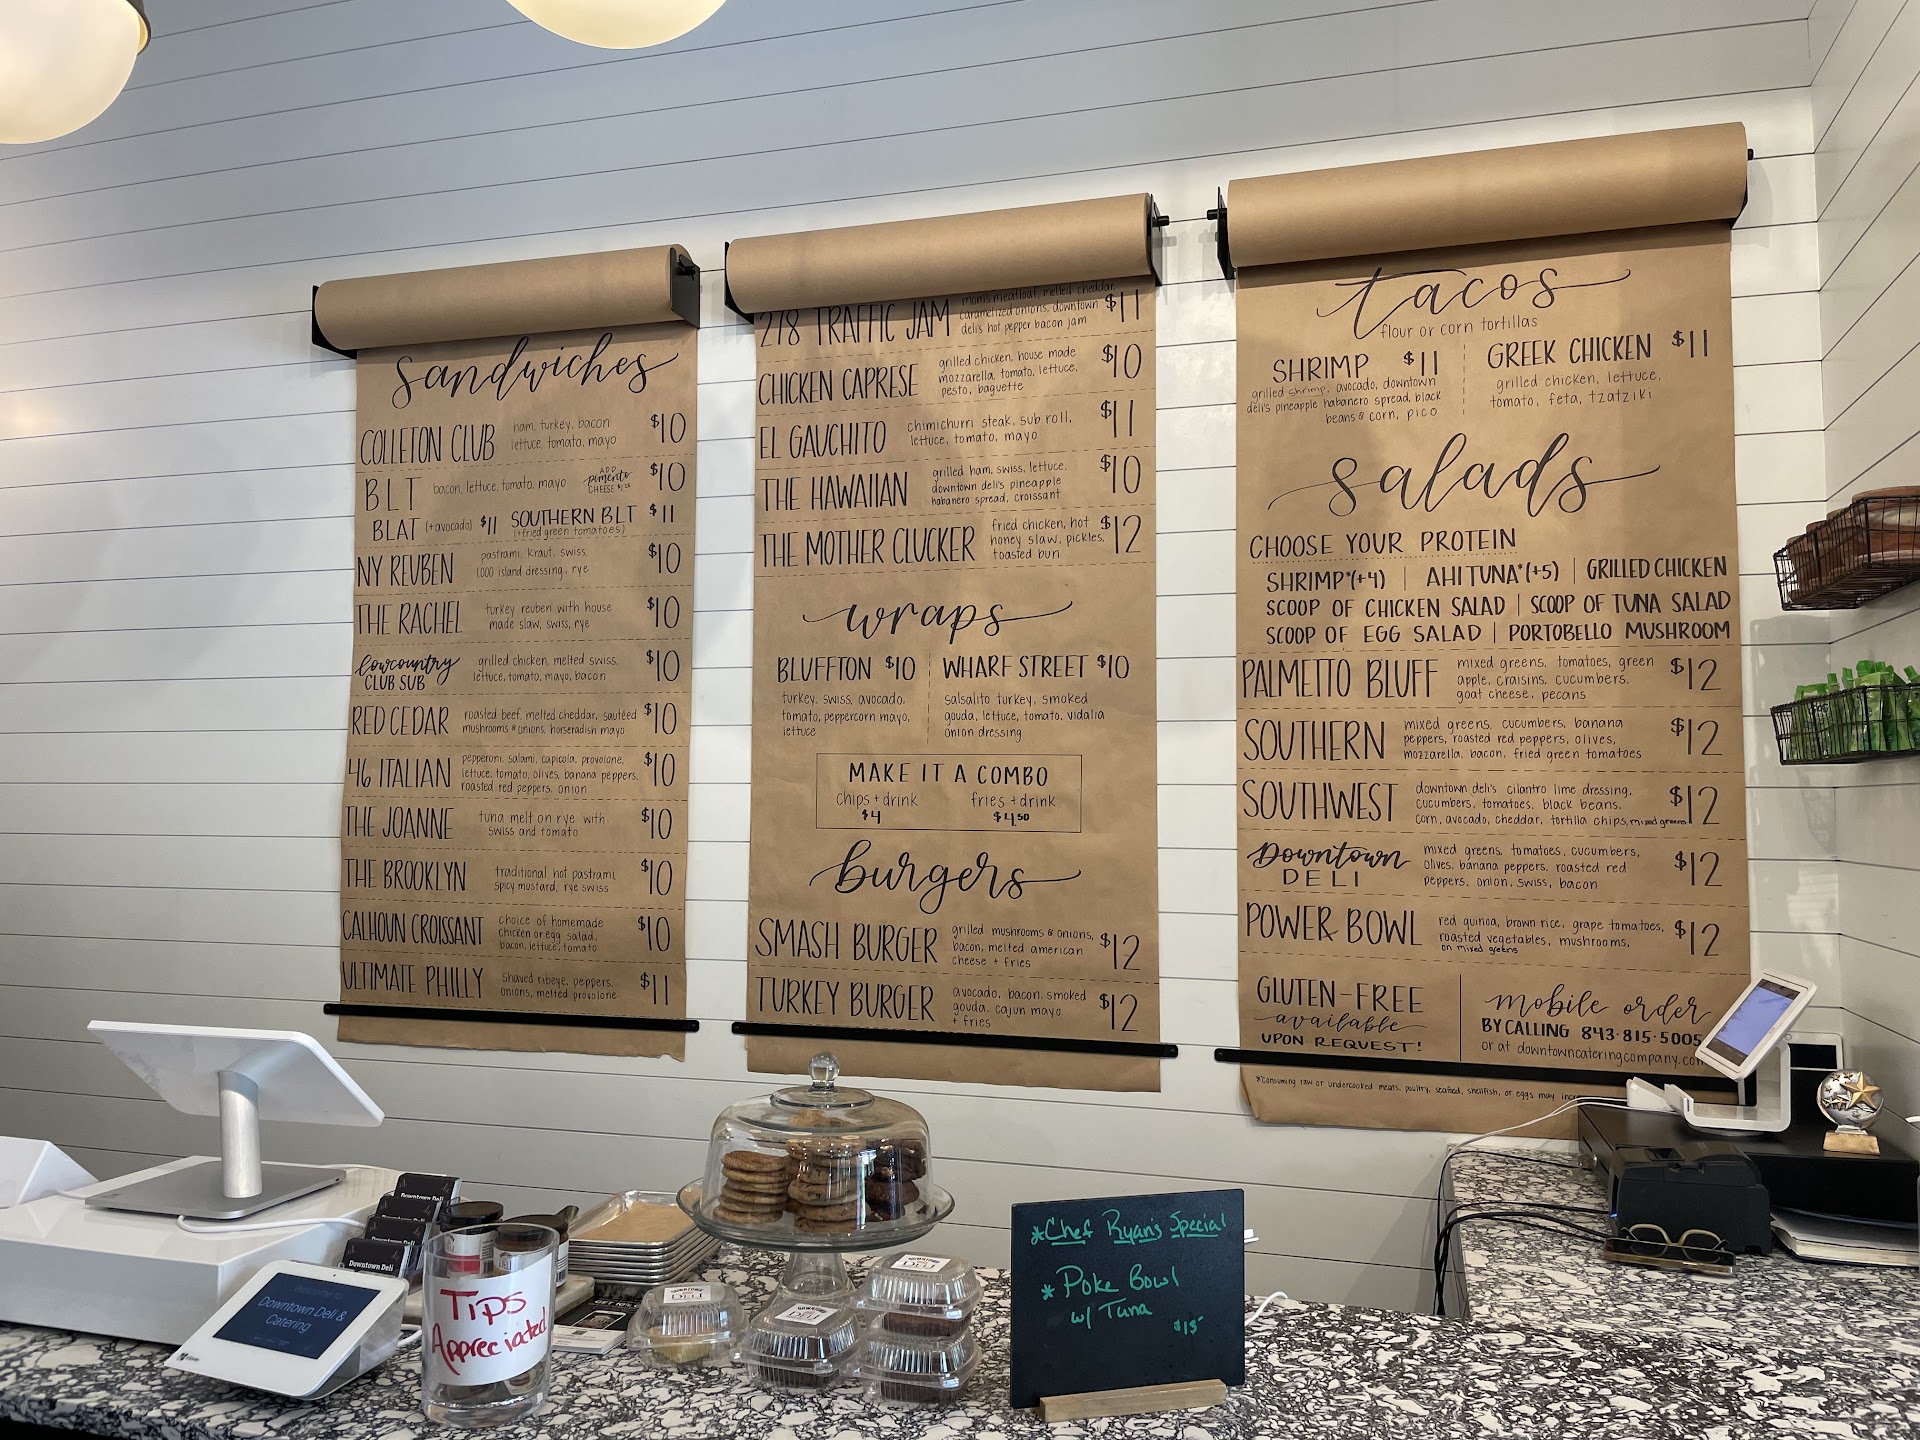 Sandwiches
COLLETON CLUB
ham, turkey, bacon
lettuce, tomato, mayo
$10
BLT
bacon, lettuce, tomato, mayo
ADD
pimento
CHEESE $1.25
$10
BLAT (+avocado) $11
SOUTHERN BLT $11
(+fried green tomatoes)
NY REUBEN
pastrami, kraut, swiss,
1000 island dressing, rye
$10
THE RACHEL
turkey reuben with house
made slaw, swiss, rye
$10
lowcountry
CLUB SUB
grilled chicken, melted swiss,
lettuce, tomato, mayo, bacon
$10
RED CEDAR
roasted beef, melted cheddar, sautéed
mushrooms & onions, horseradish mayo
$10
46 ITALIAN
pepperoni, salami, capicola, provolone,
lettuce, tomato, olives, banana peppers,
roasted red peppers, onion
$10
THE JOANNE
tuna melt on rye with
swiss and tomato
$10
THE BROOKLYN
traditional hot pastrami,
spicy mustard, rye swiss
$10
CALHOUN CROISSANT
choice of homemade
chicken or egg salad,
bacon, lettuce, tomato
$10
ULTIMATE PHILLY
shaved ribeye, peppers,
onions, melted provolone
$11
278 TRAFFIC JAM
mom's meatloaf, melted cheddar,
caramelized onions, downtown
deli's hot pepper bacon jam
$11
CHICKEN CAPRESE
grilled chicken, house made
mozzarella, tomato, lettuce,
pesto, baguette
$10
EL GAUCHITO
chimichurri steak, sub roll,
lettuce, tomato, mayo
$11
THE HAWAIIAN
grilled ham, swiss, lettuce,
downtown deli's pineapple
habanero spread, croissant
$10
THE MOTHER CLUCKER
fried chicken, hot
honey slaw, pickles,
toasted bun
$12
wraps
BLUFFTON $10
turkey, swiss, avocado,
tomato, peppercorn mayo,
lettuce
WHARF STREET $10
salsalito turkey, smoked
gouda, lettuce, tomato, vidalia
onion dressing
MAKE IT A COMBO
chips + drink
$4
fries + drink
$4.50
burgers
SMASH BURGER
grilled mushrooms & onions,
bacon, melted american
cheese + fries
$12
TURKEY BURGER
avocado, bacon, smoked
gouda, cajun mayo
+ fries
$12
tacos
flour or corn tortillas
SHRIMP $11
grilled shrimp, avocado, downtown
deli's pineapple habanero spread, black
beans & corn, pico
GREEK CHICKEN $11
grilled chicken, lettuce,
tomato, feta, tzatziki
salads
CHOOSE YOUR PROTEIN
SHRIMP*(+4) | AHI TUNA*(+5) | GRILLED CHICKEN
SCOOP OF CHICKEN SALAD | SCOOP OF TUNA SALAD
SCOOP OF EGG SALAD | PORTOBELLO MUSHROOM
PALMETTO BLUFF
mixed greens, tomatoes, green
apple, craisins, cucumbers,
goat cheese, pecans
$12
SOUTHERN
mixed greens, cucumbers, banana
peppers, roasted red peppers, olives,
mozzarella, bacon, fried green tomatoes
$12
SOUTHWEST
downtown deli's cilantro lime dressing,
cucumbers, tomatoes, black beans,
corn, avocado, cheddar, tortilla chips, mixed greens
$12
Downtown
DELI
mixed greens, tomatoes, cucumbers,
olives, banana peppers, roasted red
peppers, onion, swiss, bacon
$12
POWER BOWL
red quinoa, brown rice, grape tomatoes,
roasted vegetables, mushrooms,
on mixed greens
$12
GLUTEN-FREE
available
UPON REQUEST!
mobile order
BY CALLING 843·815·5005
or at downtowncateringcompany.com
*Consuming raw or undercooked meats, poultry, seafood, shellfish, or eggs may incre
Downtown Deli
Downtown Deli
Downtown Deli
Downtown Deli &
Catering
Tips
Appreciated
DELI
DELI
DELI
*Chef Ryan's Special
* Poke Bowl
w/ Tuna
$15